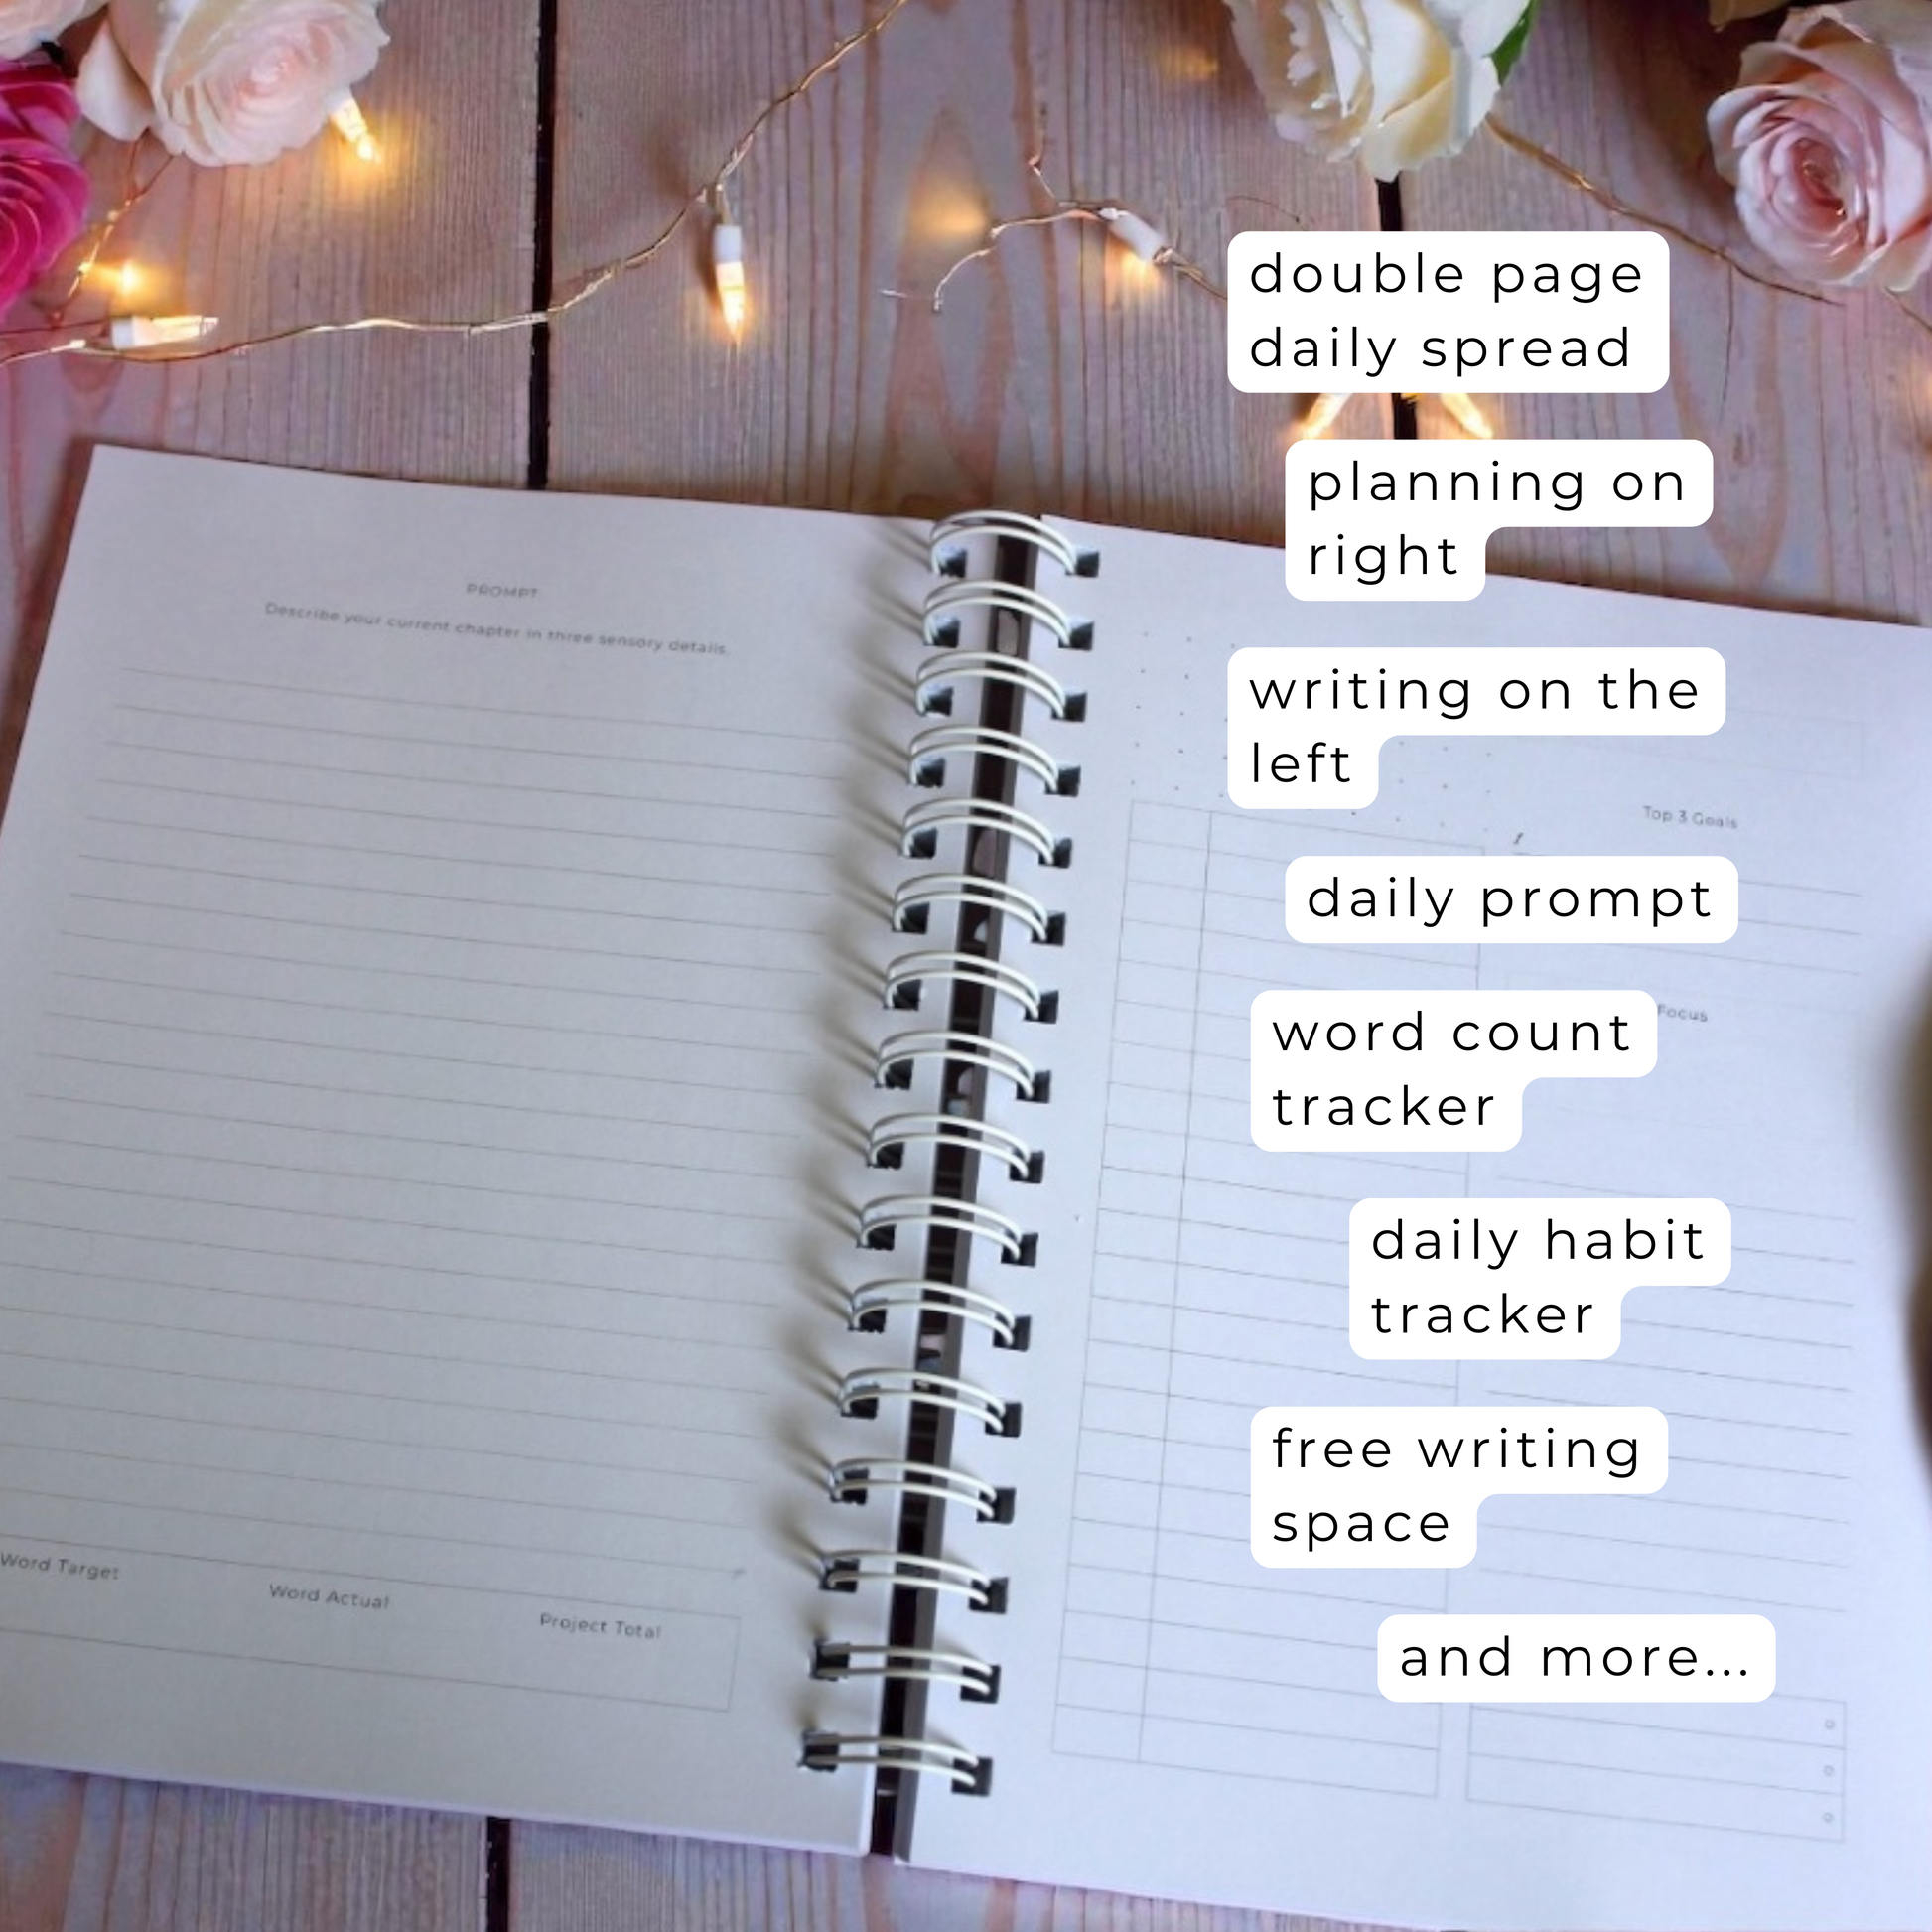 double page
daily spread
planning on
right
writing on the
left
daily prompt
word count
tracker
daily habit
tracker
free writing
space
and more...
PROMPT
Describe your current chapter in three sensory details.
Word Target
Word Actual
Project Total
Top 3 Goals
1
Focus